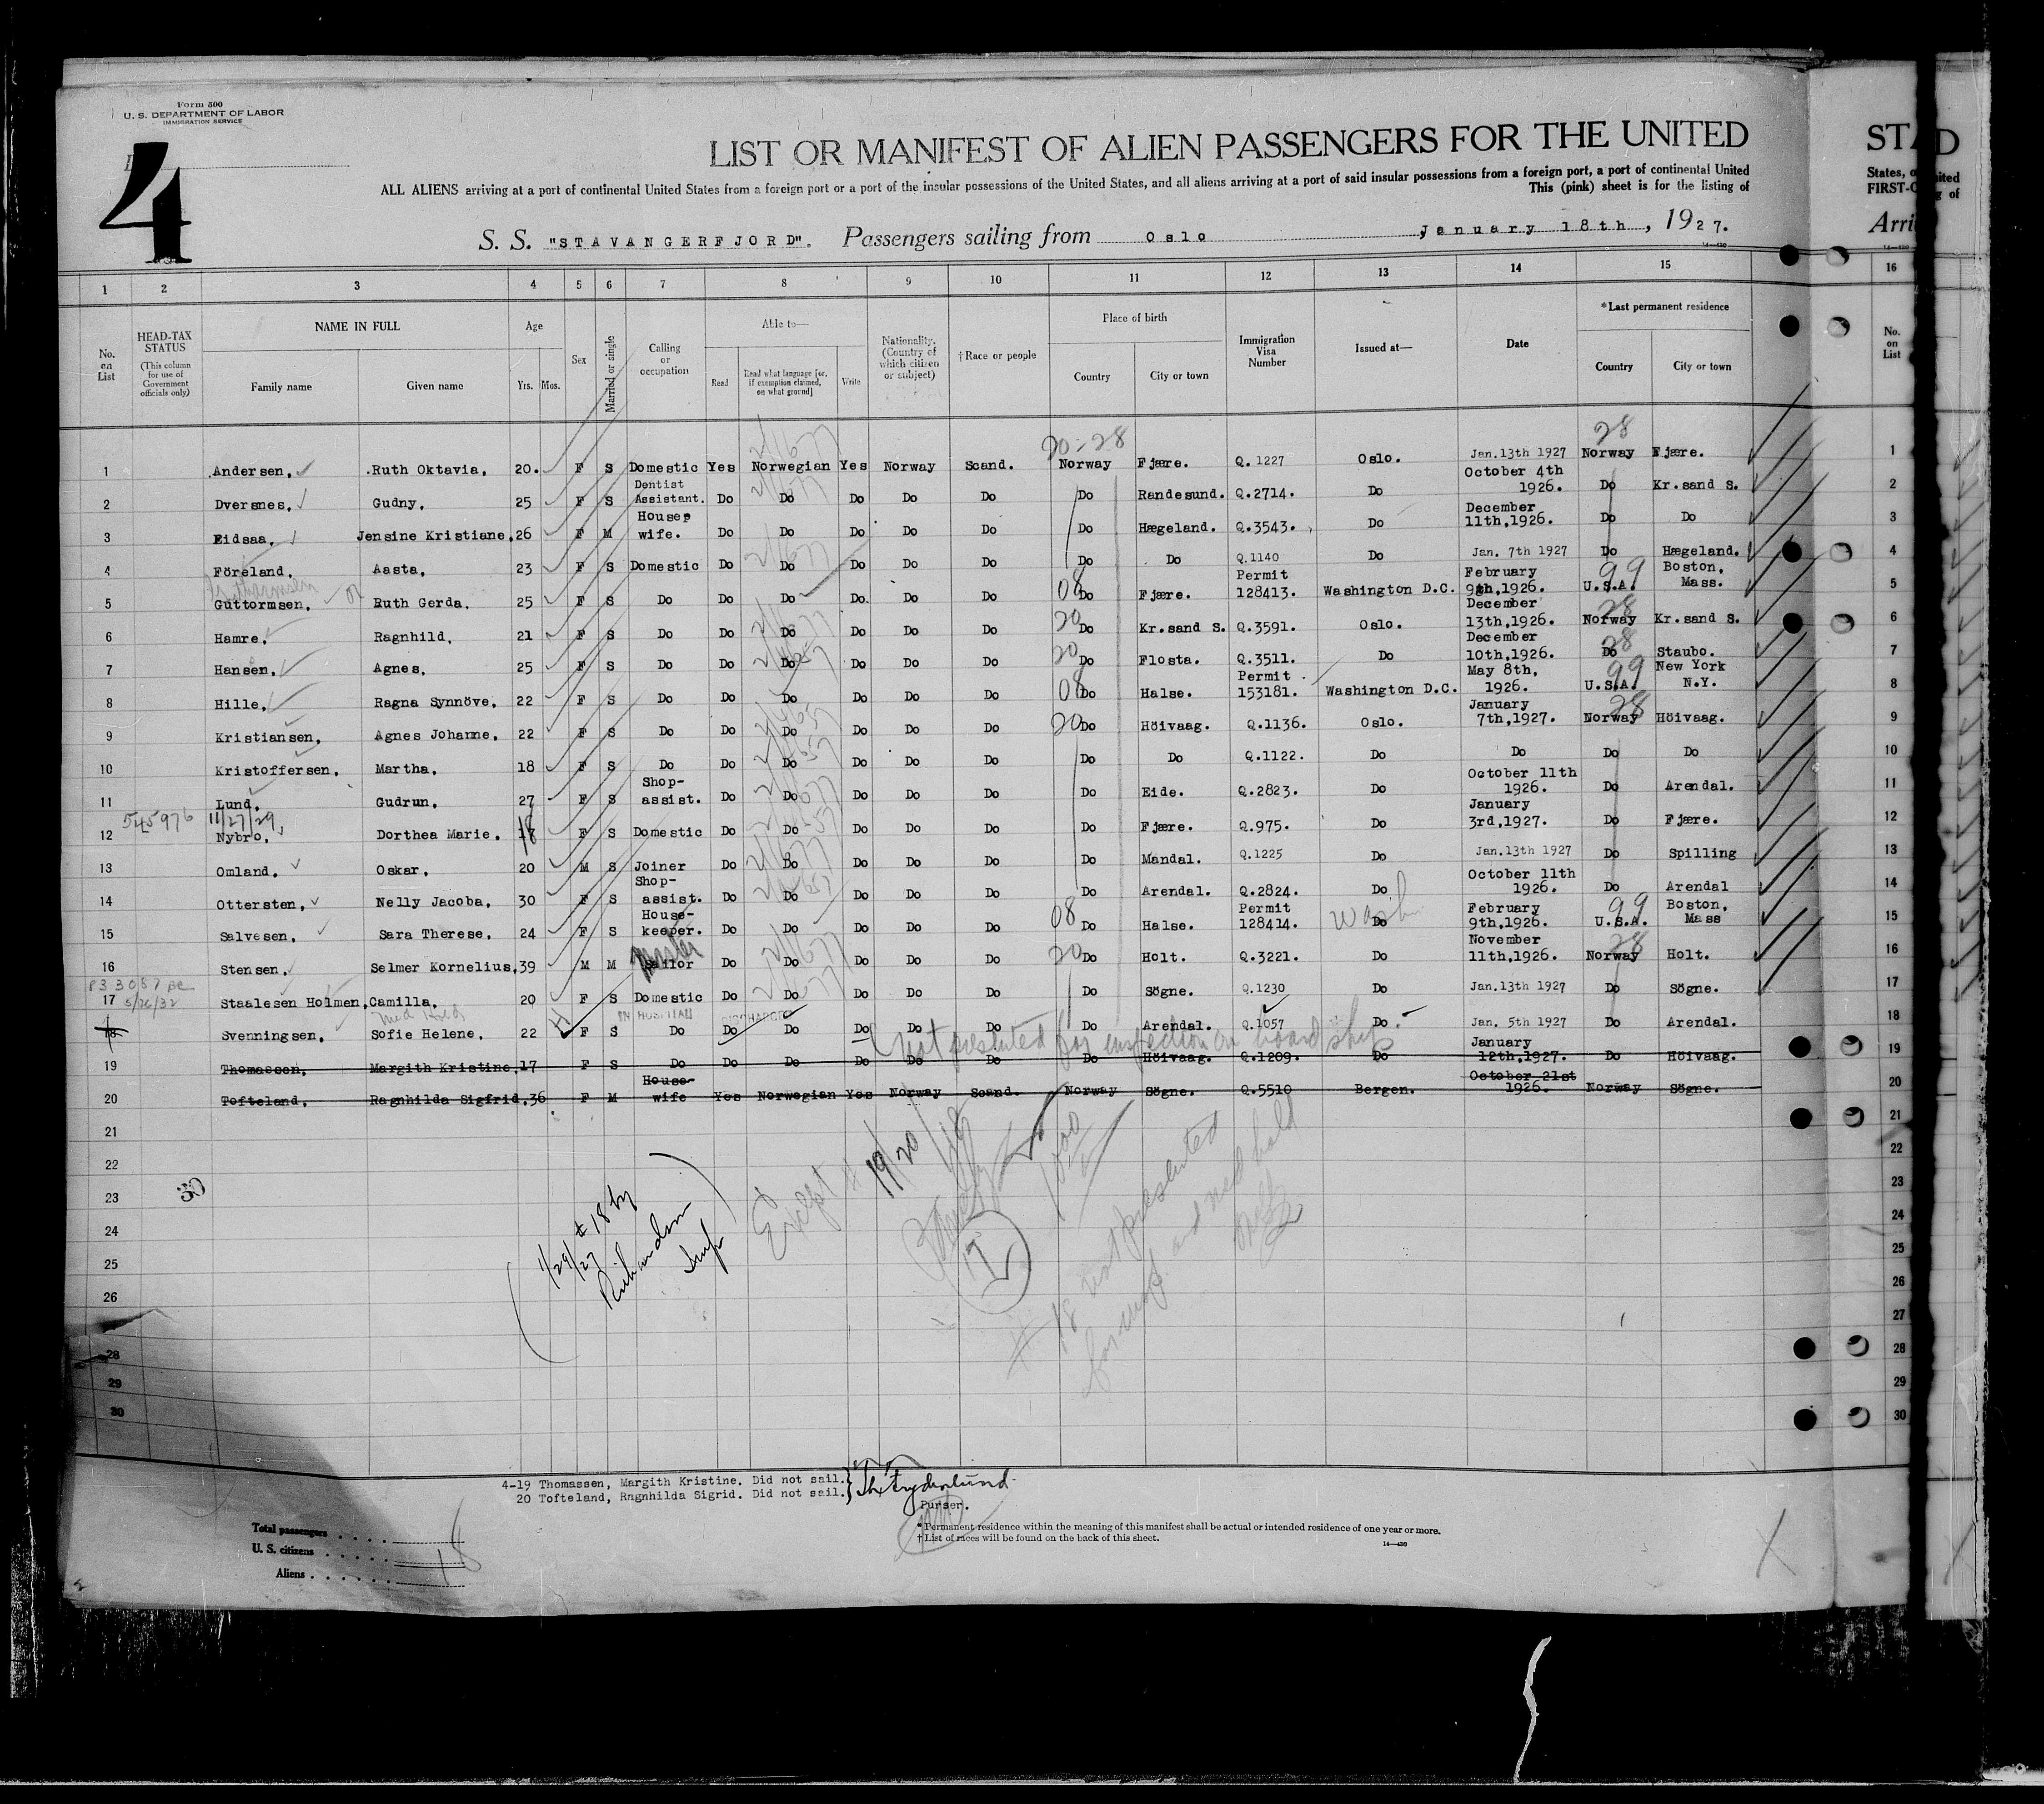 Form 500
U. S. DEPARTMENT OF LABOR
IMMIGRATION SERVICE
4
LIST OR MANIFEST OF ALIEN PASSENGERS FOR THE UNITED
ALL ALIENS arriving at a port of continental United States from a foreign port or a port of the insular possessions of the United States, and all aliens arriving at a port of said insular possessions from a foreign port, a port of continental United
This (pink) sheet is for the listing of
S. S. "STAVANGERFJORD". Passengers sailing from Oslo, January 18th, 1927.
STA
D
States, o
FIRST-C
Arri
1 2 3 4 5 6 7 8 9 10 11 12 13 14 15 16
No. on List
HEAD-TAX STATUS (This column for use of Government officials only)
NAME IN FULL
Family name
Given name
Age
Yrs. Mos.
Sex
Married or single
Calling or occupation
Able to—
Read
Read what language [or, if exemption claimed, on what ground]
Write
Nationality. (Country of which citizen or subject)
†Race or people
Place of birth
Country
City or town
Immigration Visa Number
Issued at—
Date
*Last permanent residence
Country
City or town
No. on List
20-28
28
1 Andersen. Ruth Oktavia. 20. F S Domestic Yes Norwegian Yes Norway Scand. Norway Fjære. Q. 1227 Oslo. Jan.13th 1927 Norway Fjære. 1
2 Dversnes. Gudny. 25 F S Dentist Assistant. Do Do Do Do Do Do Randesund. Q.2714. Do October 4th 1926. Do Kr.sand S. 2
3 Eidsaa. Jensine Kristiane. 26 F M House wife. Do Do Do Do Do Do Hægeland. Q.3543. Do December 11th,1926. Do Do 3
4 Föreland. Aasta. 23 F S Domestic Do Do Do Do Do Do Do Q.1140 Do Jan. 7th 1927 Do Hægeland. 4
5 Guttormsen. or Ruth Gerda. 25 F S Do Do Do Do Do Do 08 Do Fjære. Permit 128413. Washington D.C. February 9th,1926. 99 U.S.A. Boston, Mass. 5
6 Hamre. Ragnhild. 21 F S Do Do Do Do Do Do 20 Do Kr.sand S. Q.3591. Oslo. December 13th,1926. 28 Norway Kr.sand S. 6
7 Hansen. Agnes. 25 F S Do Do Do Do Do Do 20 Do Flosta. Q.3511. Do December 10th,1926. 28 Do Staubo. 7
8 Hille. Ragna Synnöve. 22 F S Do Do Do Do Do Do 08 Do Halse. Permit 153181. Washington D.C. May 8th, 1926. 99 U.S.A. New York N.Y. 8
9 Kristiansen. Agnes Johanne. 22 F S Do Do Do Do Do Do 20 Do Höivaag. Q.1136. Oslo. January 7th,1927. 28 Norway Höivaag. 9
10 Kristoffersen. Martha. 18 F S Do Do Do Do Do Do Do Do Q.1122. Do Do Do Do 10
11 Lund. Gudrun. 27 F S Shop-assist. Do Do Do Do Do Do Eide. Q.2823. Do October 11th 1926. Do Arendal. 11
545976 11/27/29
12 Nybro. Dorthea Marie. 18 F S Domestic Do Do Do Do Do Do Fjære. Q.975. Do January 3rd,1927. Do Fjære. 12
13 Omland. Oskar. 20 M S Joiner Do Do Do Do Do Do Mandal. Q.1225 Do Jan.13th 1927 Do Spilling 13
14 Ottersten. Nelly Jacoba. 30 F S Shop-assist. Do Do Do Do Do Do Arendal. Q.2824. Do October 11th 1926. Do Arendal 14
15 Salvesen. Sara Therese. 24 F S House-keeper. Do Do Do Do Do 08 Do Halse. Permit 128414. Wash Do February 9th,1926. 99 U.S.A. Boston, Mass 15
16 Stensen. Selmer Kornelius. 39 M M Sailor Do Do Do Do Do 20 Do Holt. Q.3221. Do November 11th,1926. 28 Norway Holt. 16
5/26/32
17 Staalesen Holmen. Camilla. 20 F S Domestic Do Do Do Do Do Do Sögne. Q.1230 Do Jan.13th 1927 Do Sögne. 17
Med Hold
IN HOSPITAL DISCHARGED
18 Svenningsen. Sofie Helene. 22 F S Do Do Do Do Do Do Do Arendal. Q.1057 Do. Jan. 5th 1927 Do Arendal. 18
not presented for inspection on board ship
19 Thomassen. Margith Kristine. 17 F S Do Do Do Do Do Do Do Höivaag. Q.1209. Do January 12th,1927. Do Höivaag. 19
20 Tofteland. Ragnhilda Sigfrid. 36 F M House-wife Yes Norwegian Yes Norway Scand. Norway Sögne. Q.5510 Bergen. October 21st 1926. Norway Sögne. 20
21 21
22 22
23 23
24 24
25 25
26 26
27
28 28
29 29
30 30
30
(1/29/27 # 18 by Richardson Insp)
Except 19/20
17
# 18 not presented for insp. and med hold
4-19 Thomassen, Margith Kristine. Did not sail.
20 Tofteland, Ragnhilda Sigrid. Did not sail.
Purser.
Total passengers
U. S. citizens
Aliens
18
* Permanent residence within the meaning of this manifest shall be actual or intended residence of one year or more.
† List of races will be found on the back of this sheet.
14—430